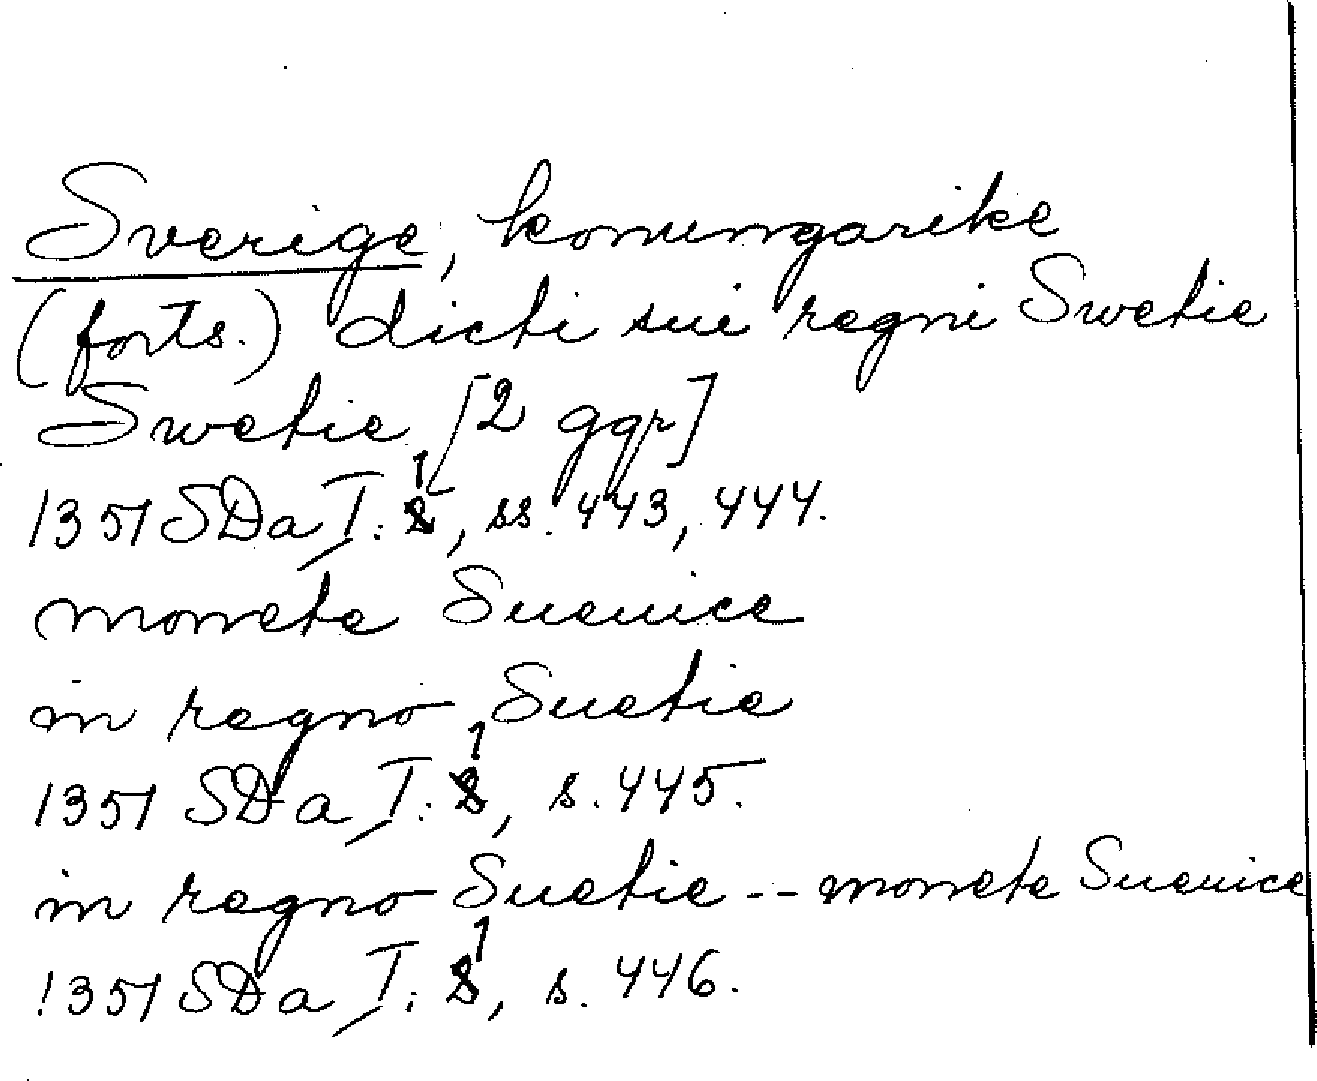 Sverige, konungarike
(forts.) dicti sui regni Swetie
Swetie [2 ggr]
1351 SDa I:1, ss. 443, 444.
monete Sueuice
in regno Suetie
1351 SDa I:1, s. 445.
in regno Suetie -- monete Sueuice
1351 SDa I:1, s. 446.